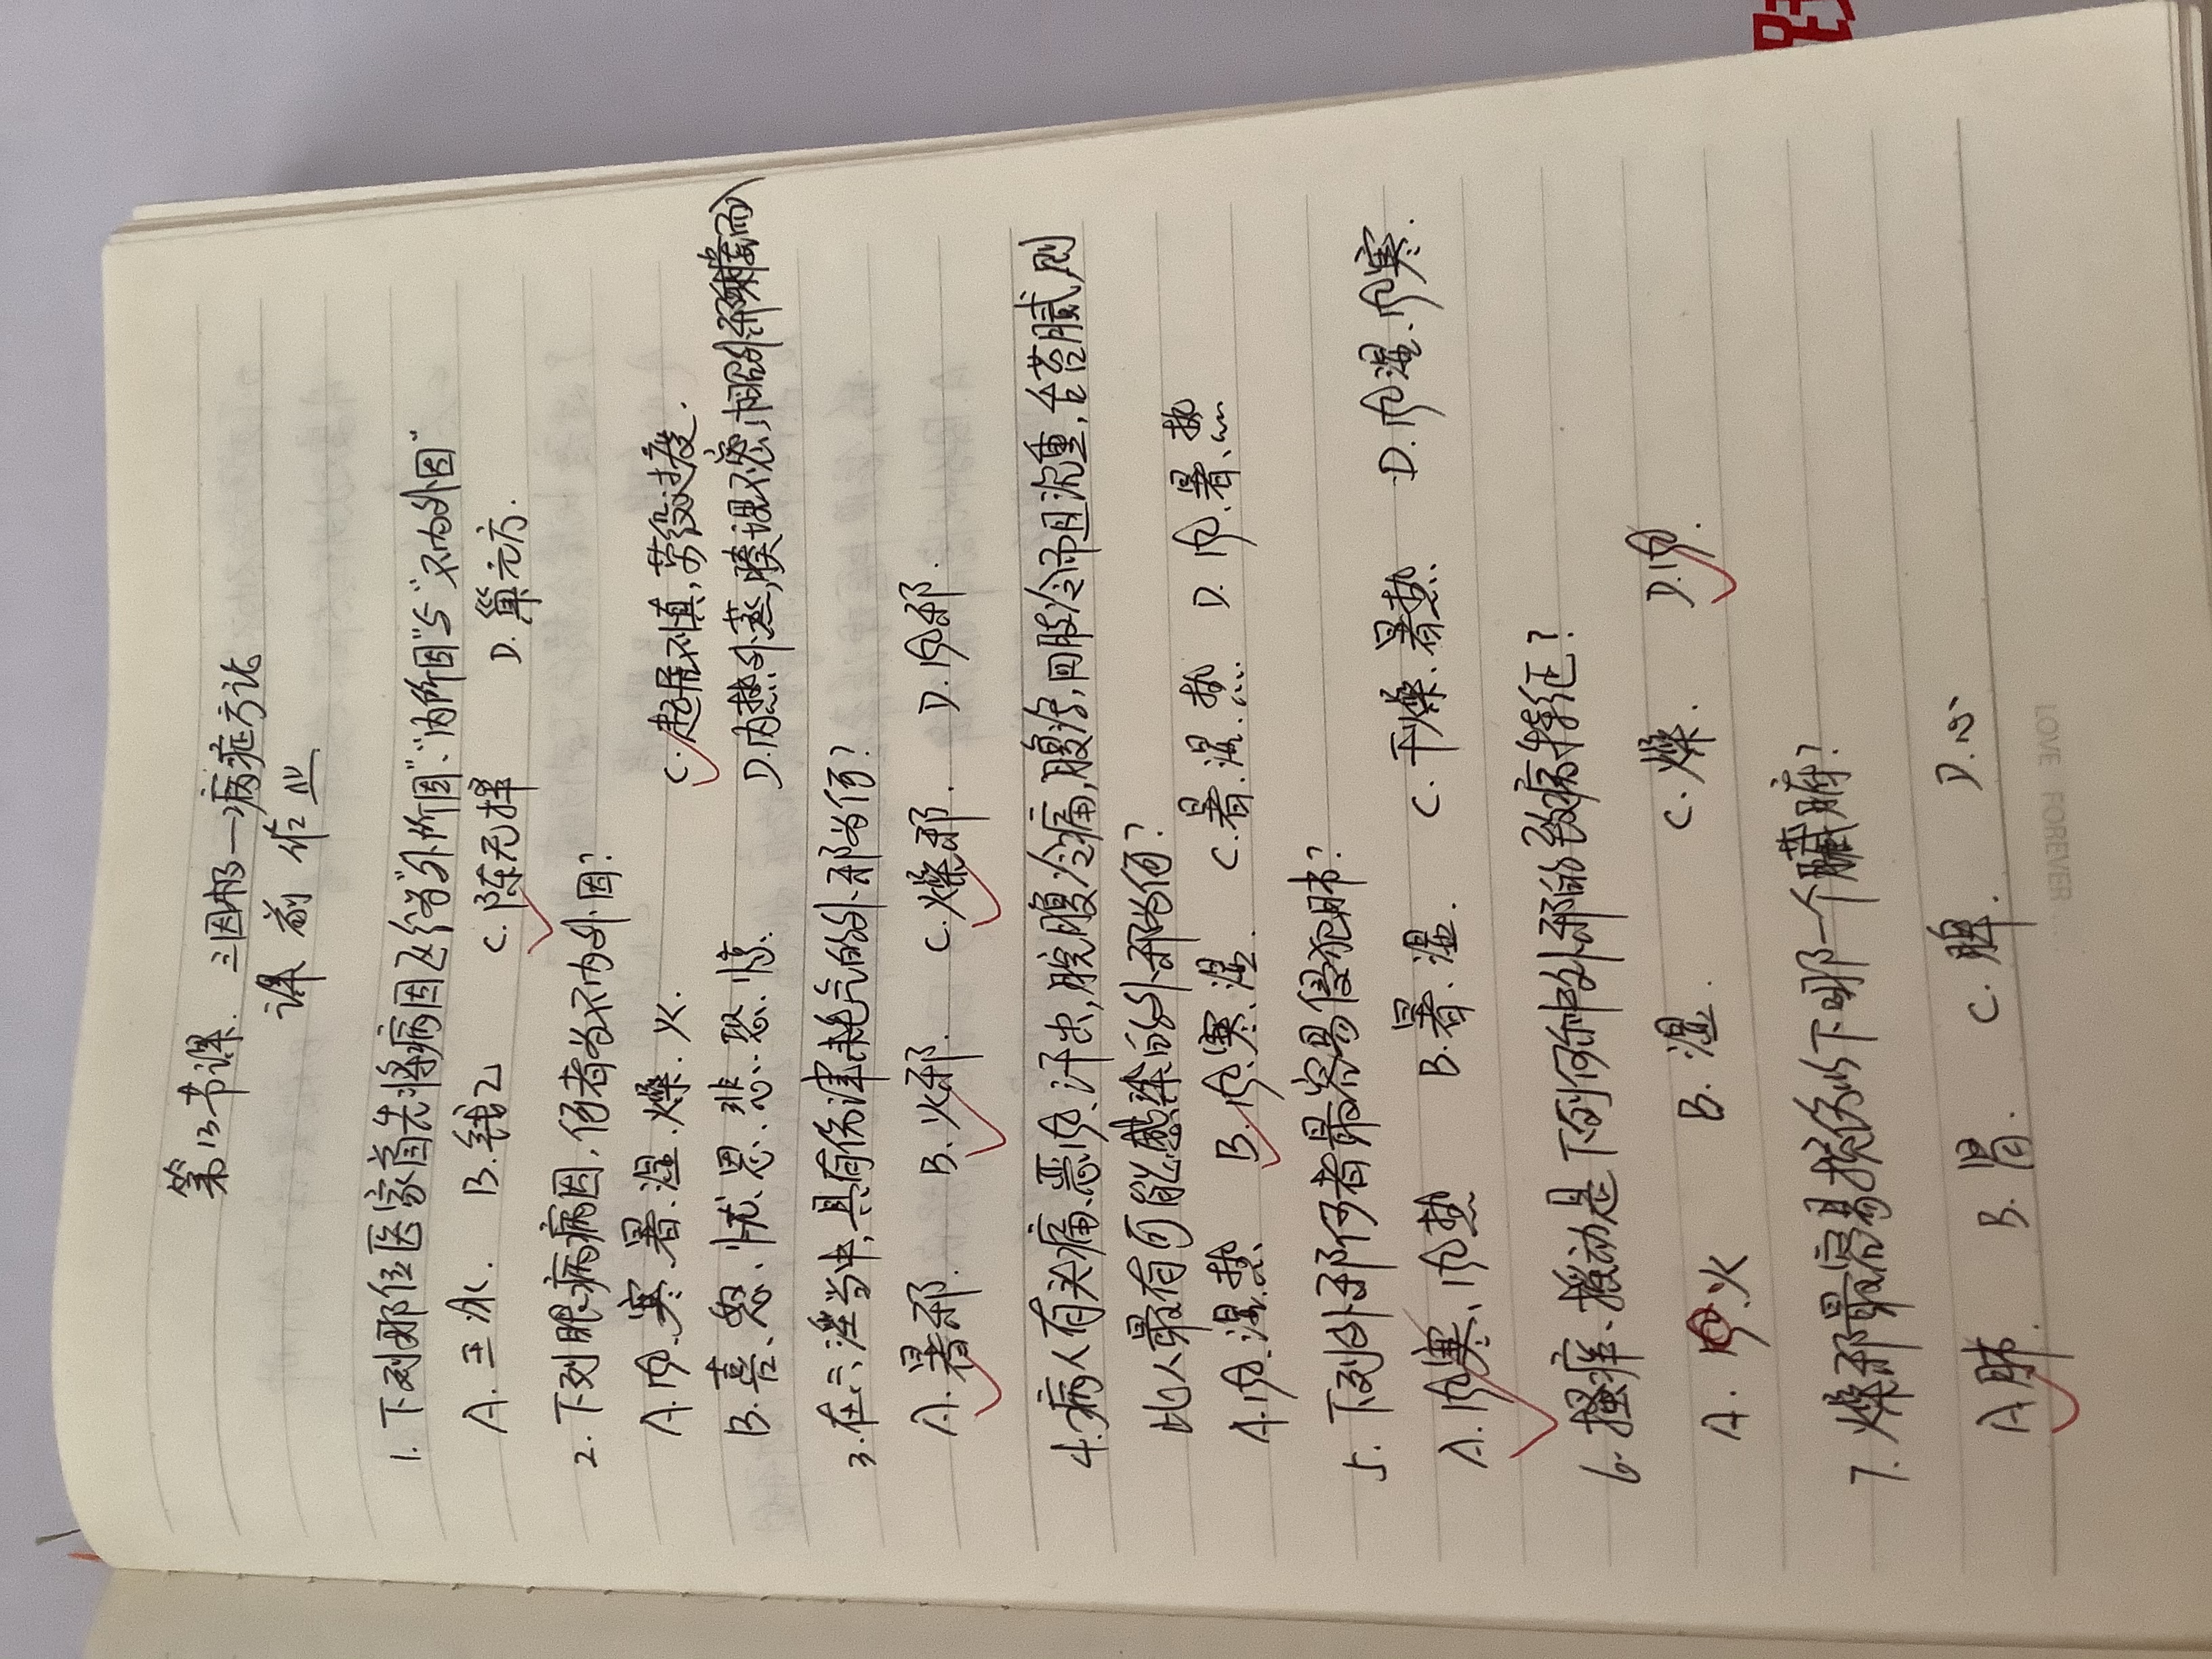 第13节课. 三因极一病症方论
课 前 作 业
1. 下列哪位医家首先将病因区分为"外所因"、"内所因"与"不内外因"
A. 王冰. B. 钱乙 C. 陈无择 D. 巢元方.
2. 下列眼病病因, 何者为不内外因?
A. 风.寒.暑.湿.燥.火. C. 起居不慎,劳役过度.
B. 喜、怒、忧.思.悲.恐.惊. D. 内热外蒸,腠理不密,
3. 在六淫当中,具有伤津耗气的外邪为何?
A. 暑邪. B. 火邪. C. 燥邪. D. 风邪.
4. 病人有头痛.恶风.汗出,脘腹冷痛,腹泻,四肢冷而且沉重,舌苔腻,则
此人最有可能感染的外邪为何?
A. 风.湿.热. B. 风.寒.湿. C. 暑.湿.热. D. 风.暑.热.
5. 下列外邪何者最容易侵犯肺?
A. 风寒、风热 B. 暑.湿. C. 干燥.暑热 D. 风湿.风寒.
6. 搔痒、搐动是下列何种外邪的致病特征?
A. 火 B. 湿. C. 燥. D. 风.
7. 燥邪最容易损伤以下哪一个臟腑?
A. 肺. B. 胃. C. 脾. D. 心.
LOVE FOREVER